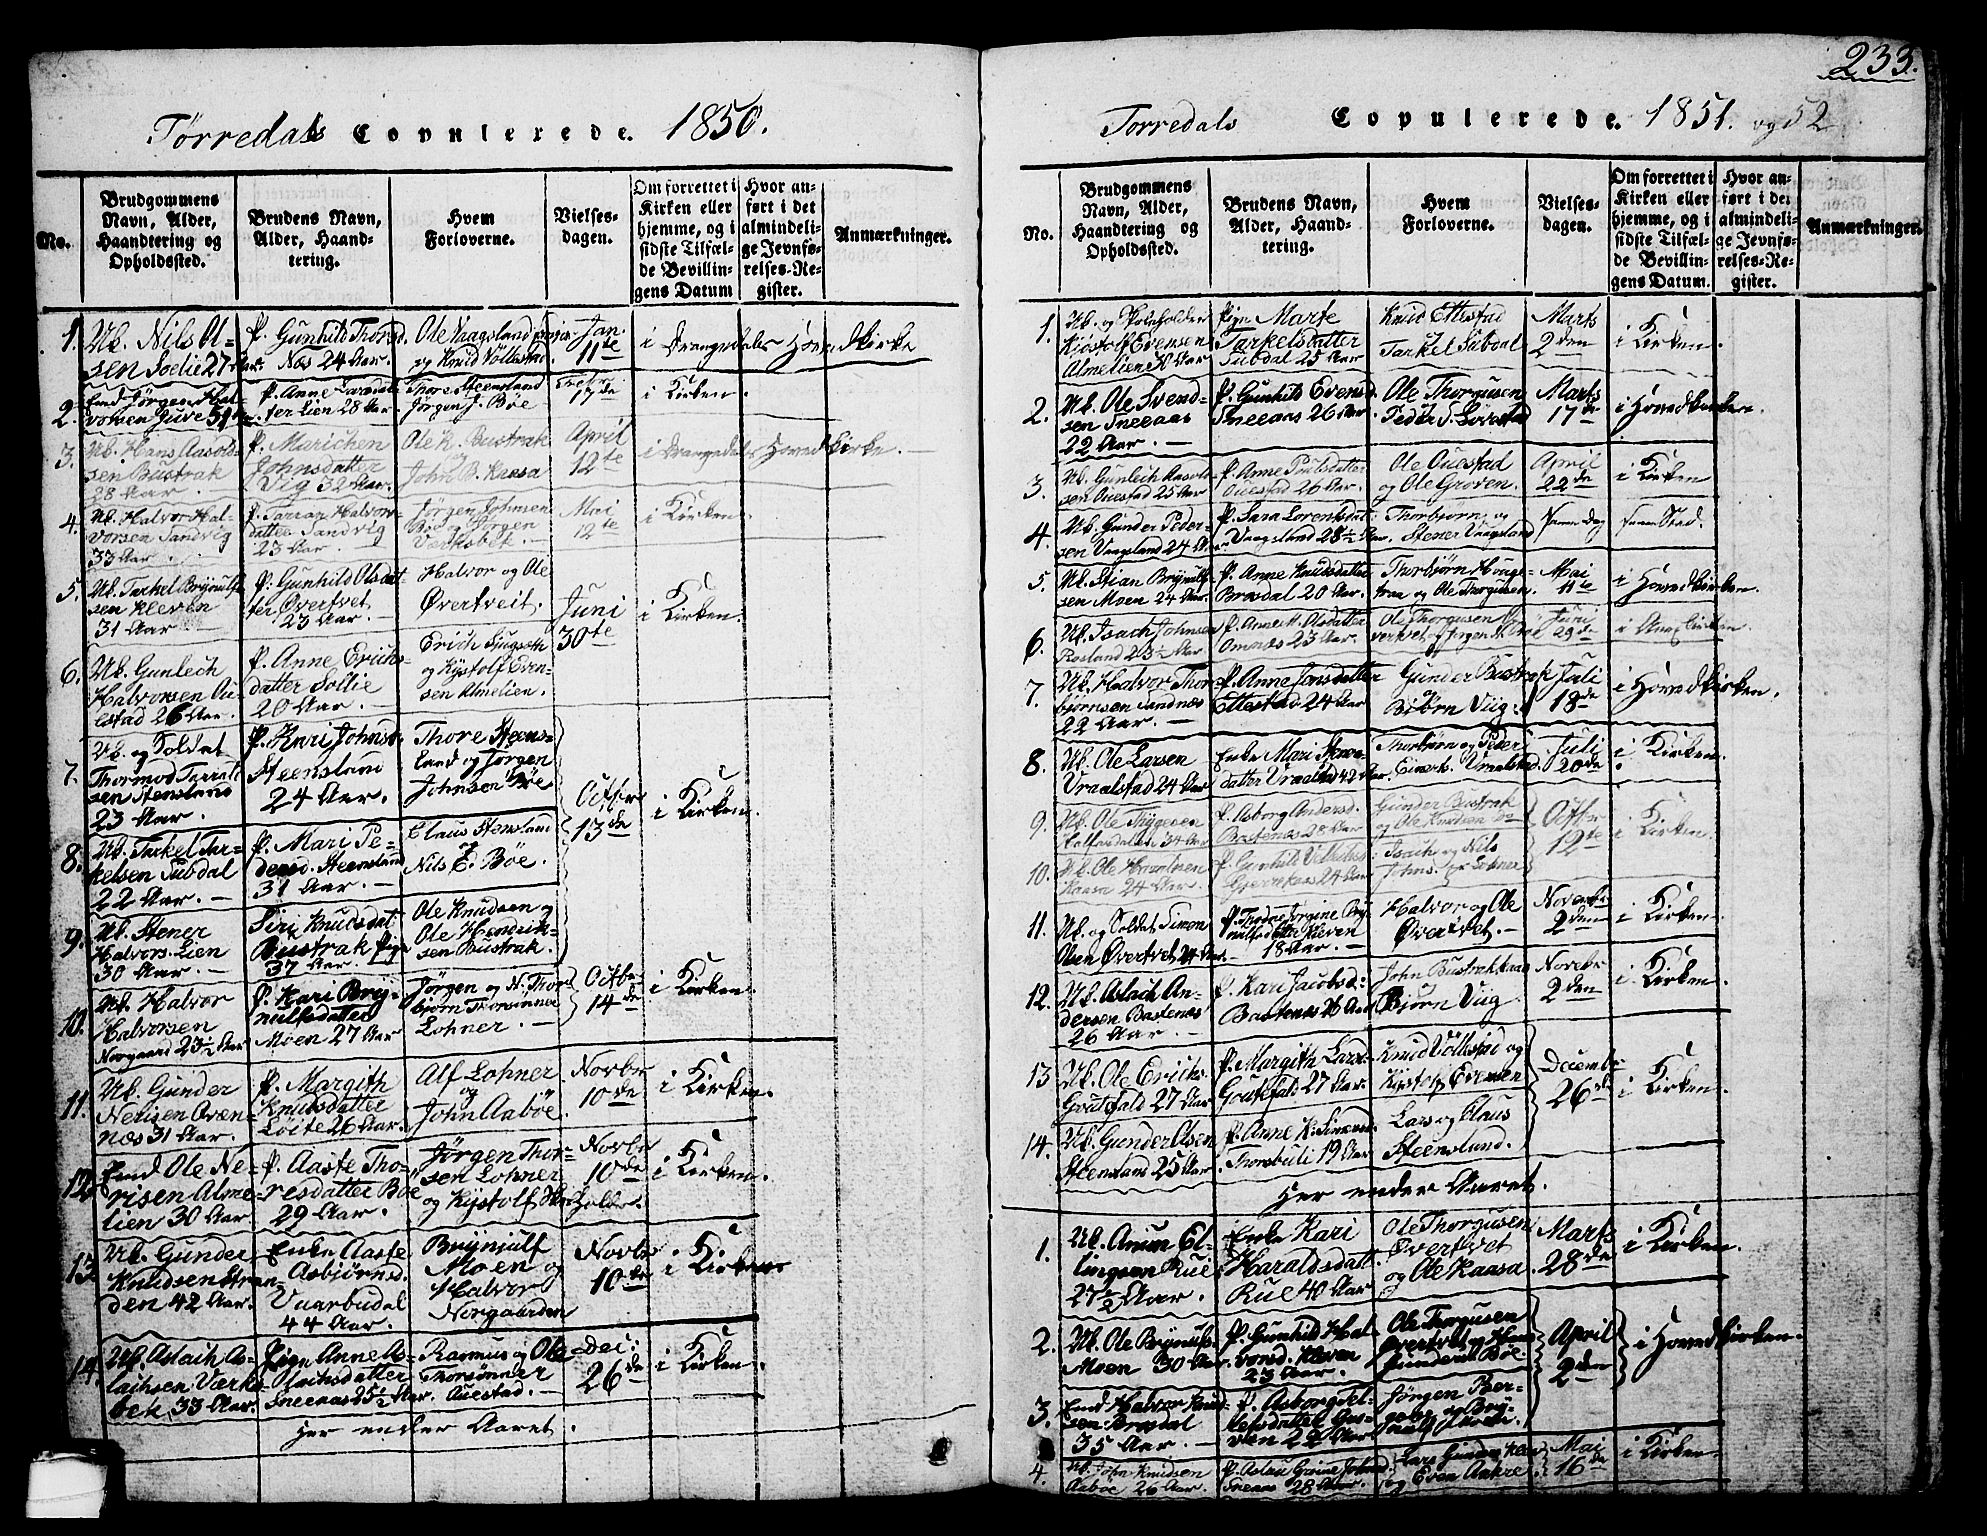 Tørredals Copulerede. 1850.
No.
Brudgommens Navn, Alder, Haandtering og Opholdssted.
Brudens Navn, Alder, Haandtering.
Hvem Forloverne.
Vielsesdagen.
Om forrettet i Kirken eller hjemme, og i sidste Tilfælde Bevillingens Datum
Hvor anført i det almindelige Jevnførelses-Register.
Anmærkninger.
1. Uk. Nils Olsen Soelie 27 Aar. P. Gunhild Thorsd. Næs 24 Aar. Ole Vaagsland og Knud Völlestad Jan. 11te i Drangedals Hovedkirke
2. Emd Jørgen Halvorsen Juve 59 Aar. P. Anne Larsdatter Lien 28 Aar. Thore Steensland Jørgen J. Bøe 17de i Kirken.
3. Uk. Hans Aasoldsen Bustrak 28 Aar. P. Marichen Johnsdatter Vig 32 Aar. Ole K. Bustrak og John B. Kaasa April 12te i Drangedals Hovedkirke.
4. Uk. Halvor Halvorsen Sandvig 33 Aar. P. Tarran Halvorsdatter Sandvig 23 Aar. Jørgen Johnsen Bøe og Jørgen Værksbek. Mai 12te i Kirken.
5. Uk. Tarkel Brynulfsen Kleven 31 Aar. P. Gunhild Olsdatter Øvertvet 23 Aar. Halvor og Ole Øvertveit. Juni 30te i Kirken.
6. Uk. Gunlech Halvorsen Ouestad 26 Aar. P. Anne Erichsdatter Sollie 20 Aar. Erich og Kjstolf Evensen Almelien.
7. Uk. og Soldat Thormod Tarraldsen Stensland 23 Aar. P. Kari Johnsd. Steensland 24 Aar. Thore Steensland og Jørgen Johnsen Bøe Octbr 13de i Kirken.
8. Uk. Tarkel Tarkelsen Tubdal 22 Aar. P. Mari Pedersd. Steensland 31 Aar. Claus Stensland og Nils E. Bøe.
9. Uk. Stener Halvors. Lien 30 Aar. Siri Knudsdat. Bustrak Pige 37 Aar. Ole Knudsen og Ole Hendriksen Bustrak.
10. Uk. Halvor Halvorsen Norgaard 23½ Aar P. Kari Brynulfsdatter Moen 27 Aar Jørgen og N. Thorbjørn Thorsønner Lohner. Octbr 14de i Kirken.
11. Uk. Gunder Nerisen Ovennæs 31 Aar. P. Margith Knudsdatter Loite 26 Aar. Alf Lohner og John Aabøe. Novbr 10de i Kirken.
12. Emd Ole Nerisen Almelien 30 Aar P. Aaste Thoresdatter Bøe 29 Aar. Jørgen Thorsen Lohner og Kjstolf Novbr 10de i Kirken.
13. Uk. Gunder Knudsen Stranden 42 Aar. Enke Aaste Asbjørnsd. Vaarbudal 44 Aar. Brynjulf Moen og Halvor Norgaarden Novbr 10de i Kirken
14. Uk. Aslach Aslachsen Værksbek 33 Aar. Pige Anne Aslachsdatter Sneeaas 25½ Aar. Rasmus og Ole Thorsønner Ouestad. Dec: 26de i Kirken.
Her ender Aaret.
233.
Torredals Copulerede. 1851. og 52
No.
Brudgommens Navn, Alder, Haandtering og Opholdssted.
Brudens Navn, Alder, Haandtering.
Hvem Forloverne.
Vielsesdagen.
Om forrettet i Kirken eller hjemme, og i sidste Tilfælde Bevillingens Datum.
Hvor anført i det almindelige Jevnførelses-Register.
Anmærkninger.
1. Uk. og Skoleholder Kjøstolf Evensen Almelien 30 Aar Pige Marte Tarkelsdatter Tubdal 25 Aar Knud Ettestad Tarkel Tubdal Marts 2den i Kirken.
2. Uk. Ole Svendsen Sneeaas 22 Aar. P. Gunhild Evensd. Sneeaas 26 Aar. Ole Thorgusen Peder J. Marts 17de i Hovedkirken.
3. Uk. Gunlech Aasoldsen Ouestad 25 Aar P. Anne Poulsdatter Ouestad 26 Aar. Ole Ouestad og Ole Groven. April 22de i Kirken
4. Uk. Gunder Pedersen Vaagsland 24 Aar P. Sara Lorentsdat. Vaagsland 28½ Aar. Thorbjørn og Stener Vaagsland samme Dag samme Sted.
5. Uk. Stian Brynulfsen Moen 24 Aar. P. Anne Knudsdatter Brosdal 20 Aar. Thorbjørn og Ole Thorgusen. Mai 11te i Hovedkirken.
6. Uk. Isach Johnsen Rosland 23½ Aar P. Anne M. Olsdatter Omnæs 23 Aar. Ole Thorgusen Øvertvet og Jørgen Juni 29de i Anexkirken
7. Uk. Halvor Thorbjørnsen Sandnæs 22 Aar. P. Anne Jonsdatter Ettestad 24 Aar Gunder Bustrak Bjørn Viig. Juli 18de i Hovedkirken.
8. Uk. Ole Larsen Vraalstad 24 Aar Enke Mari Stenersdatter Vraalstad 42 Aar. Thorbjørn og Peder Einerts. Vraalstad. Juli 20de i Kirken.
9. Uk. Ole Tryggesen 34 Aar P. Asborg Andersd. Bostenæs 28 Aar Gunder Bustrak og Ole Knudsen Octbr 12te i Kirken.
10. Uk. Ole Kaasa 24 Aar. P. Gunhild 24 Aar Isach og Nils Johns.
11. Uk. og Soldat Simon Olsen Øvertvet 24 Aar. P. Thodne Jorgine Brynulfsdatter Kleven 18 Aar. Halvor og Ole Øvertvet. Novembr 2den i Kirken.
12. Uk. Aslach Andersen Bostenæs 26 Aar. P. Kari Jacobsd. Bostenæs 26 Aar John Bustrak Bjørn Viig. Novebr 2den i Kirken.
13 Uk. Ole Erichs. Goutefald 27 Aar P. Margith Larsd. Goutefald 27 Aar. Knud Völlestad og Kjstolf Evensen Decembr 26de i Kirken.
14. Uk. Gunder Olsen Steensland 25 Aar. P. Anne K. Thorsbuli 19 Aar Lars og Claus Steensland.
Her ender Aaret.
1. Uk. Anun Ellingsen Rue 27½ Aar. Enke Kari Haraldsdatt. Rue 40 Aar Ole Thorgusen Øvertvet og Ole Kaasa. Marts 28de i Kirken.
2. Uk. Ole Brynulfs. Moen 30 Aar. P. Gunhild Halvorsd. Kleven 23 Aar. Ole Thorgusen Øvertvet og Hans Gundersen Bøe. April 2den i Hovedkirken.
3. Emd Halvor Knudsen Brosdal 35 Aar. P. Asborg 22 Aar Jørgen og
4. Uk. John Knudsen Aaboe 26 Aar. P. Aslau Sneeaas 28 Aar. Lars og Even Mai 16de i Kirken.